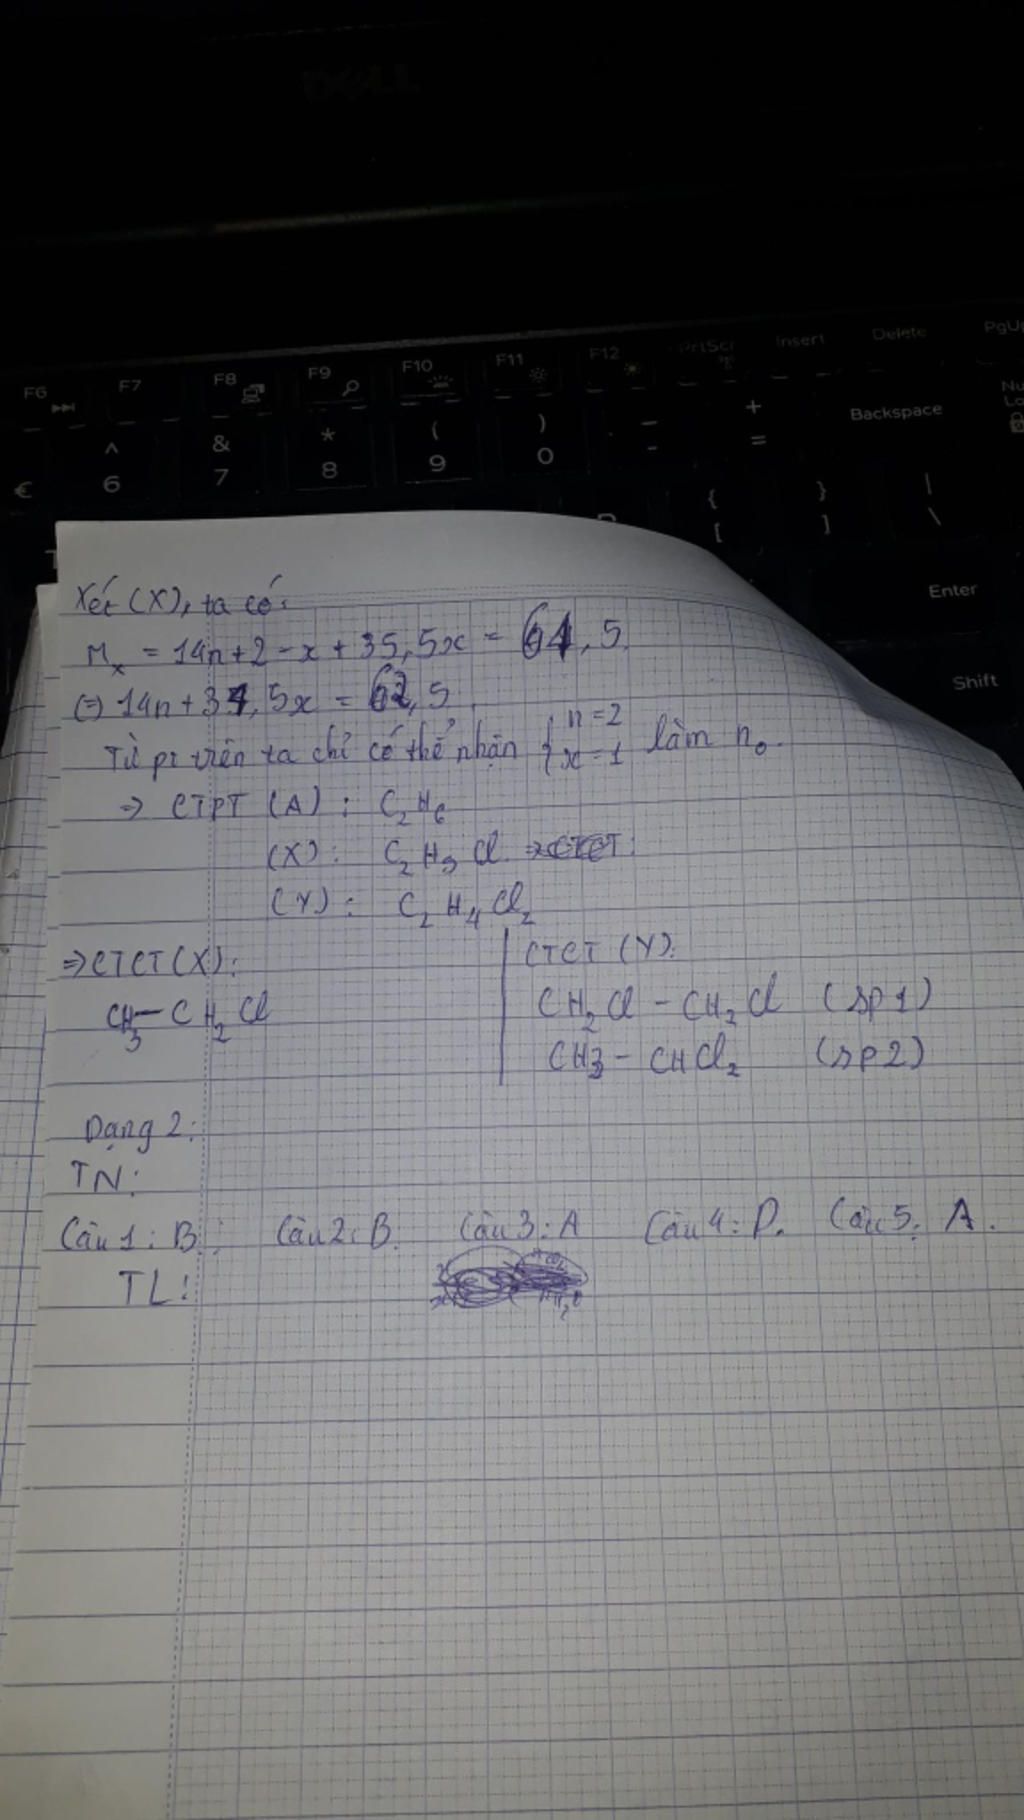 DELL
F6 F7 F8 F9 F10 F11 F12 PrtScr Insert Delete PgUp
€ ^ 6 & 7 * 8 ( 9 ) 0 _ - + = Backspace Nu Lo
{ [ } ] | \
Enter
Shift
Xét (X), ta có:
Mx = 14n + 2 - x + 35,5x = 64,5.
(=) 14n + 34,5x = 62,5
Từ pt trên ta chỉ có thể nhận { n = 2 x = 1 làm no.
=> CTPT (A): C2H6
(X): C2H5Cl
(Y): C2H4Cl2
=> CTCT (X):
CH3 - CH2Cl
CTCT (Y):
CH2Cl - CH2Cl (sp1)
CH3 - CHCl2 (sp2)
Dạng 2:
TN:
Câu 1: B. Câu 2: B. Câu 3: A Câu 4: D. Câu 5: A.
TL: